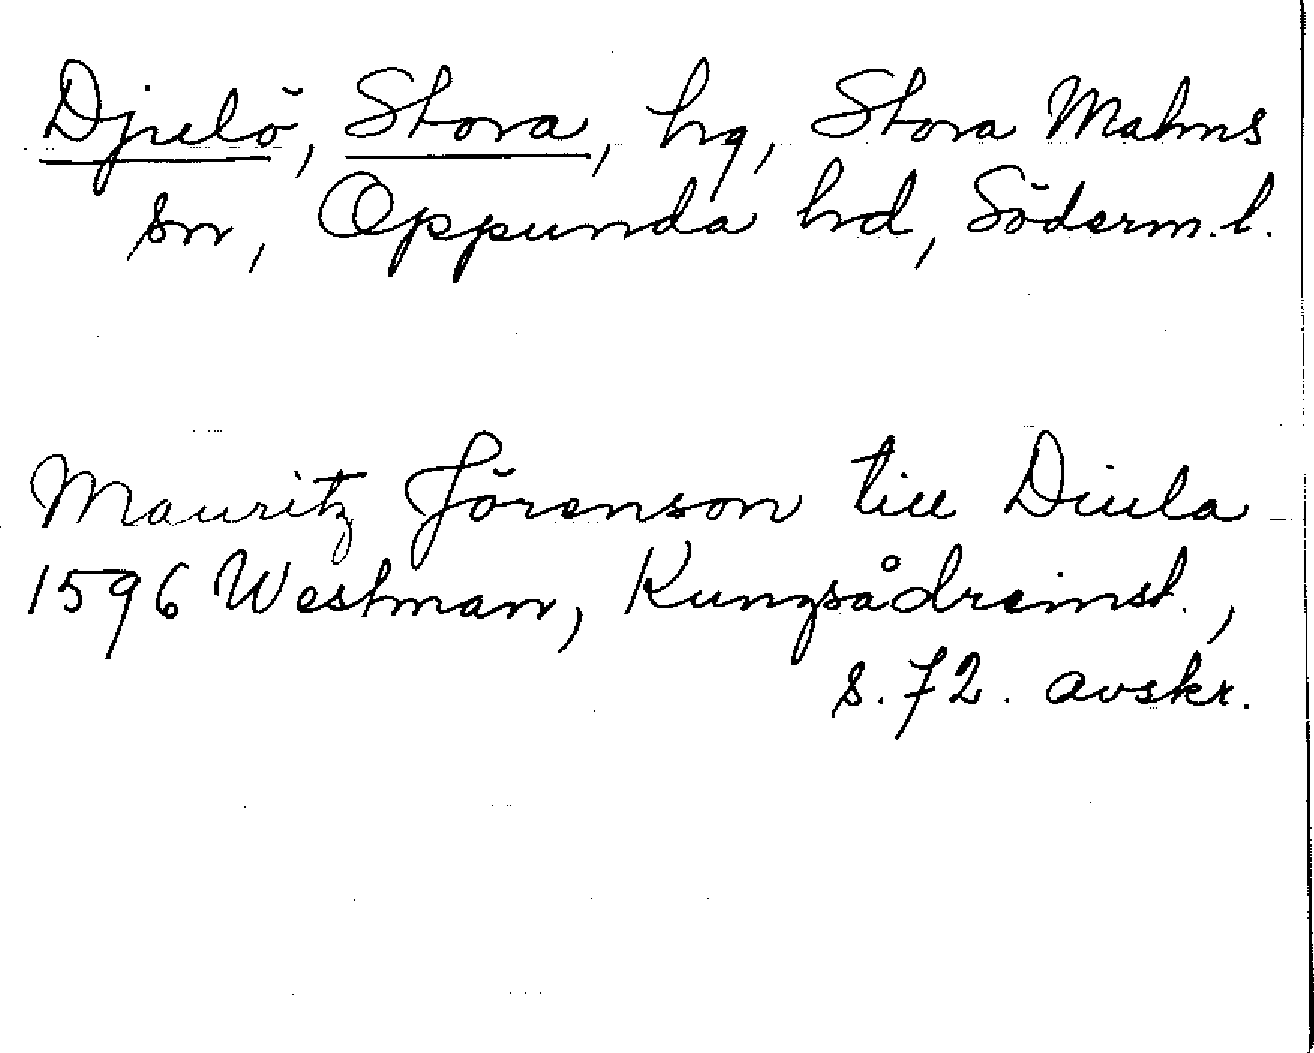 Djulö, Stora, hg, Stora Malms
sn, Oppunda hd, Söderm.l.
Mauritz Jörenson till Diula
1596 Westman, Kungsådreinst.,
s. 72. avskr.